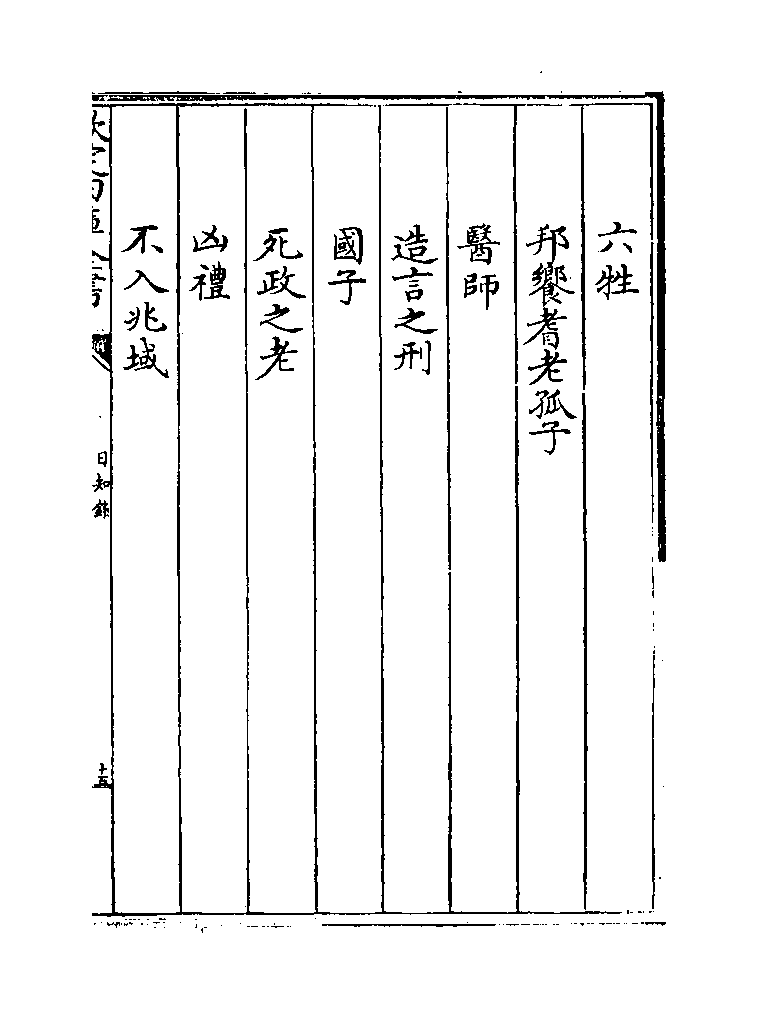 六牲
邦饗耆老孤子
醫師
造言之刑
國子
死政之老
凶禮
不入兆域
日知錄
十五